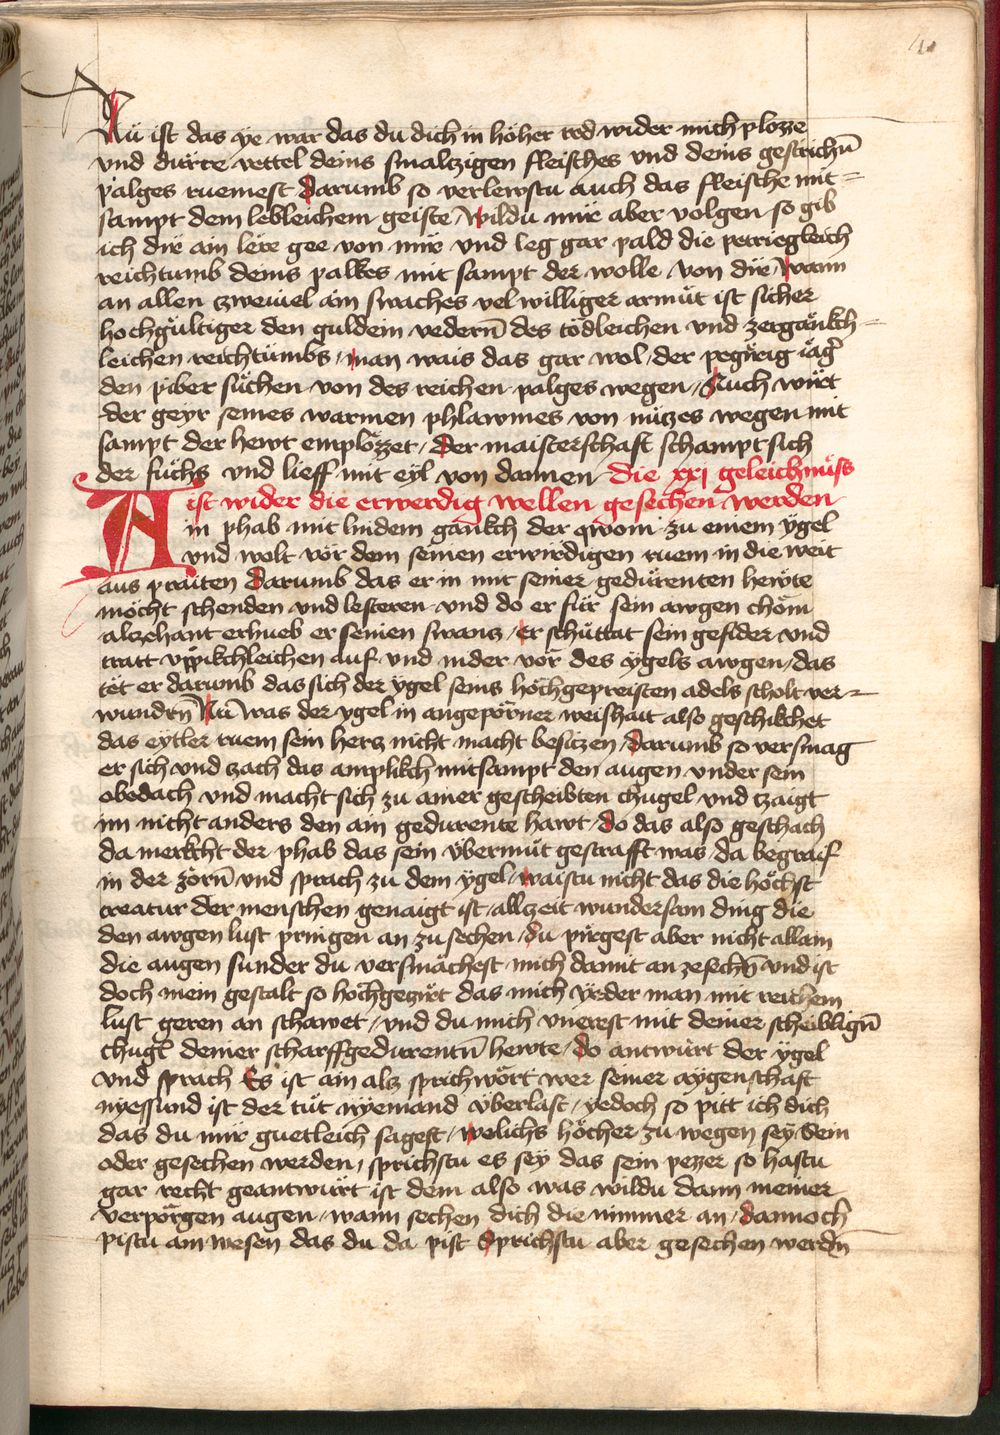 Nu ist das ye war das du dich in höher tod wider mich plozze
vnd dürre vettel deins smaltzigen fleisches vnd deins gestrichn̄
palges ruemest Darumb so verlewstu auch das fleische mit=
sampt dem lebleichem geiste / Wildu mir aber volgen so gib
ich dir ain lere gee von mir vnd leg gar pald die petriegleich
reichtumb deins palkes mit sampt der wolle von dir / Wann
an allen zweiuel ain swaches vel williger armüt ist sicher
hochgültiger den guldein vedern̄ des tödleichen vnd zergänkch=
leichen reichtumbs / man wais das gar wol der pegirig iäḡ
den piber süchen von des reichen palges wegen / Auch würt
der geyr seines warmen phlawmes von nützes wegen mit
sampt der hewt emplözzet / Der maisterschaft schampt sich
der fuchs vnd lieff mit eyl von dannen Die xxj geleichnüss
ist wider die erwerdig wellen gesechen werden
Ain phab mit lindem gankch der qwom zu einem ygel
vnd wolt vor dem seinen erwirdigen ruem in die weit
aus praiten Darumb das er in mit seiner gedürenten hewte
möcht schenden vnd lesteren vnd do er für sein awgen chöm
alczehant erhueb er seinen swans / er schüttat sein gesider vnd
tratt vppikchleichen auf vnd nider vor des ygels awgen / das
tët er darumb das sich der ygel seins höchgepreisten adels scholt ver=
wundrn̄ Nu was der ygel in angepörner weishait also geschikchet
das eytler ruem sein hers nicht macht besitzen / darumb so versmag
er sich vnd zach das amplikch mitsampt den augen vnder sein
obedach vnd macht sich zu ainer gescheibten chugel vnd tzaigt
im nicht anders den ain gedurente hawt / do das also geschach
da merkcht der phab das sein übermüt gestrafft was da begraif
in der zorn̄ vnd sprach zu dem ygel / waistu nicht das die höchst
creatur der menschen genaigt ist / allczeit wundersam ding die
den awgen lust pringen an zu sechen / du pirgest aber nicht allain
die augen sunder du versmächest mich damit an zesechn̄ vnd ist
doch mein gestalt so hochgezirt das mich yeder man mit reichem
lust geren an schawet / vnd du mich vnerest mit deiner scheiblign̄
chugl deiner scharffgedurentn̄ hewte / do antwürt der ygel
vnd sprach Es ist ain alz sprichwört wer seiner aygenschaft
nyessund ist der tüt nyemand überlast / yedoch so pitt ich dich
das du mir guetleich sagest / welichs höcher zu wegen sey sein
oder gesechen werden / sprichstu es sey das sein pezzer so hastu
gar recht geantwürt ist dem also was wildu dann meiner
verpörgen augen / wann sechen dich die nimmer an / dannoch
pistu ain wesen das du da pist Sprichstu aber gesechen werdn̄